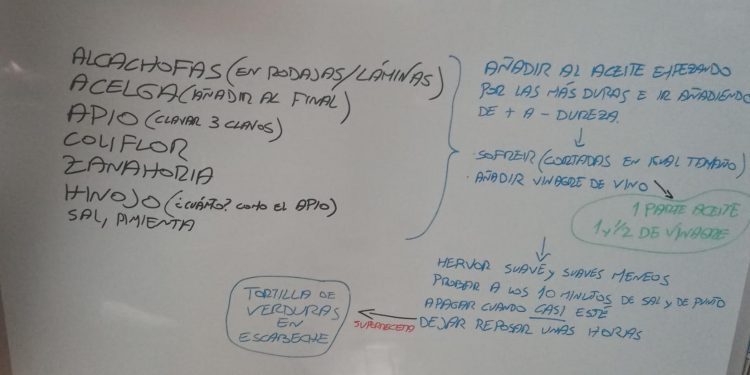 ALCACHOFAS (EN RODAJAS/LÁMINAS)
ACELGA (AÑADIR AL FINAL)
APIO (CLAVAR 3 CLAVOS)
COLIFLOR
ZANAHORIA
HINOJO (¿CUÁNTO? COMO EL APIO)
SAL, PIMIENTA
AÑADIR AL ACEITE EMPEZANDO
POR LAS MÁS DURAS E IR AÑADIENDO
DE + A - DUREZA.
SOFREIR (CORTADAS EN IGUAL TAMAÑO)
AÑADIR VINAGRE DE VINO
1 PARTE ACEITE
1 y 1/2 DE VINAGRE
HERVOR SUAVE y SUAVES MENEOS
PROBAR A LOS 10 MINUTOS DE SAL y DE PUNTO
APAGAR CUANDO CASI ESTÉ
DEJAR REPOSAR UNAS HORAS
SUPRARECETA
TORTILLA DE
VERDURAS
EN
ESCABECHE